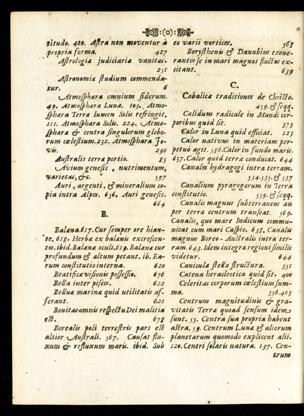 (0)
gitudo. 400. Astra non moventur à
propria forma. 427
Astrologia judiciaria vanitas.
251
Astronomia studium commendatur.
6
Atmosphæra omnium siderum.
49. Atmosphæra Lunæ. 105. Atmosphæra
Terræ lumen Solis refringit,
211. Atmosphæra Solis. 224. Atmosphæra
& centra singulorum globorum
cœlestium. 232. Atmosphæra Jovis.
290
Australis terræ portio. 85
Avium genesis, nutrimentum,
varietas, &c. 597
Auri, argenti, & mineralium copia
intra Alpes. 636. Auri genesis.
664
B.
Balæna. 617. Cur semper ore hiante,
618. Herba ex balænis excrescens.
ibid. Balænæ oculi. 619. Balænæ cur
profundum & altum petant. ib. Earum
constitutio interna. 620
Beatificæ visionis possessio. 696
Bella inter pisces. 622
Bellua marina quid utilitatis afferant.
621
Bonitas omnis respectu Dei malitia
est. 678
Borealis poli terrestris pars est
altior Australi. 567. Causat fluxum
& refluxum maris. ibid. Sub
eo varii vortices. 568
Borysthenis & Danubius exonerantes
se in mari magnos fluctus excitant.
639
C.
Cabalicæ traditiones de Christo.
459. & seqq.
Calidum radicale in Mundi corporibus
quid sit. 373
Calor in Luna quid efficiat. 123
Calor nativus in materiam perpetuò
agit. 556. Calor in fundo maris.
637. Calor quid terræ conducat. 644
Canales hydragogi intra terram.
534. 535. & 537
Canalium pyragogorum in Terra
constitutio. 539. & seqq.
Canalis magnus subterraneus an
per terræ centrum transeat. 569.
Canalis, quo mare Indicum communicat
cum mari Caspio. 638. Canalis
magnus Boreo-Australis intra terram.
643. Idem integræ regionis similis
videtur. 644
Canicula stella structura. 351
Catena heracleotica quid sit. 400
Celeritas corporum cœlestium summa.
358. 403
Centrum magnitudinis & gravitatis
Terræ quoad sensum idem
sunt. 55. Centra sua propria habent
astra. 59. Centrum Lunæ & aliorum
planetarum quomodo explicent alii.
120. Centri solaris natura. 197. Centrum